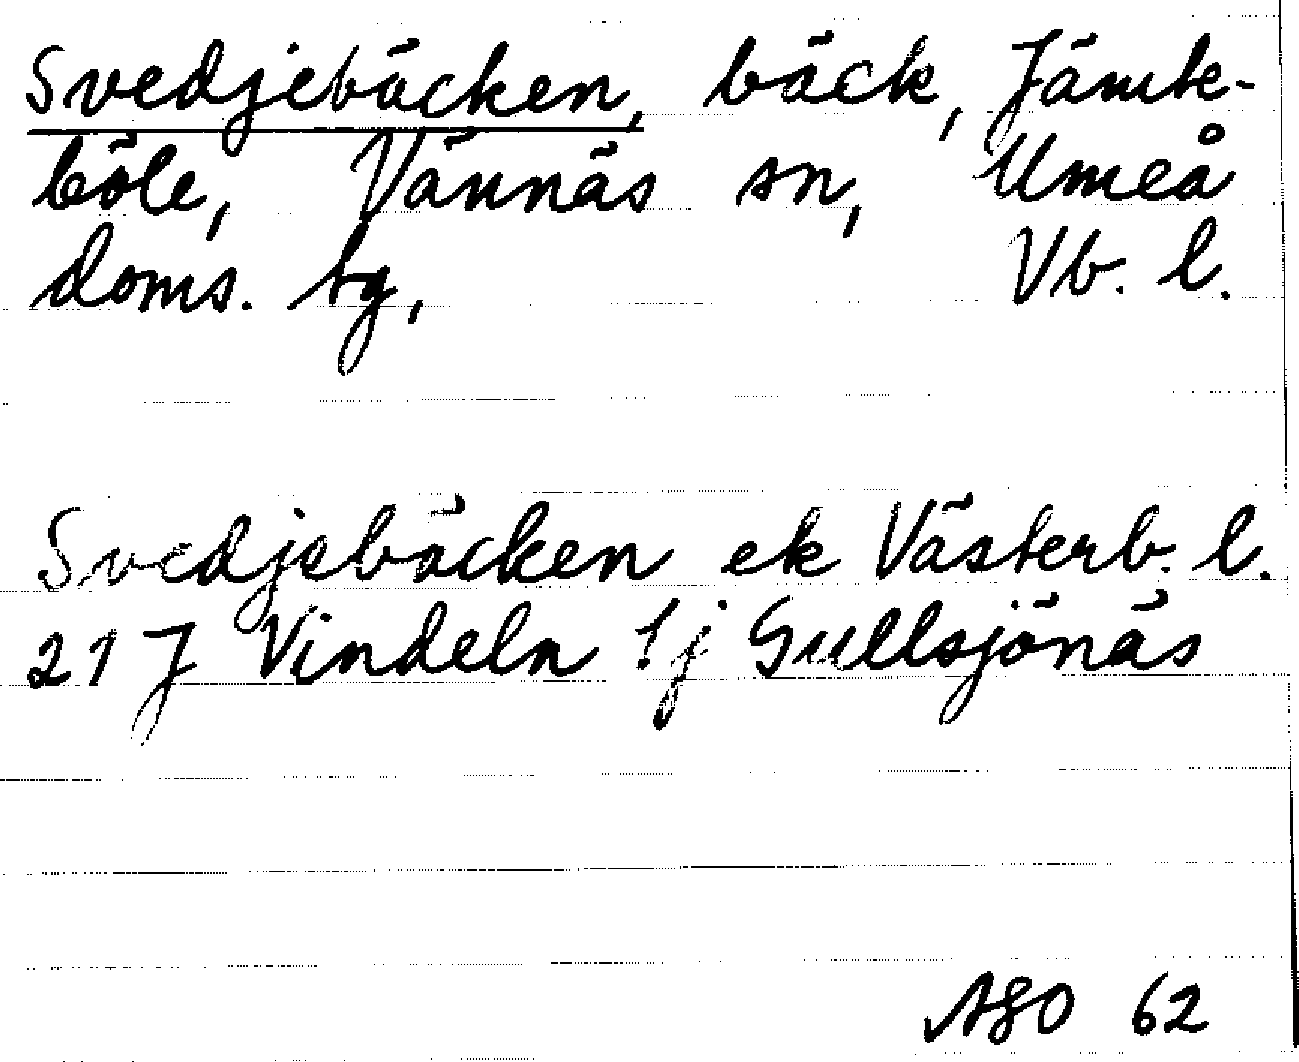 Svedjebäcken, bäck, Jämte-
böle, Vännäs sn, Umeå
doms. tg, Vb. l.
Svedjebäcken ek Västerb. l.
21 J Vindeln 1j Gullsjönäs
ASO 62